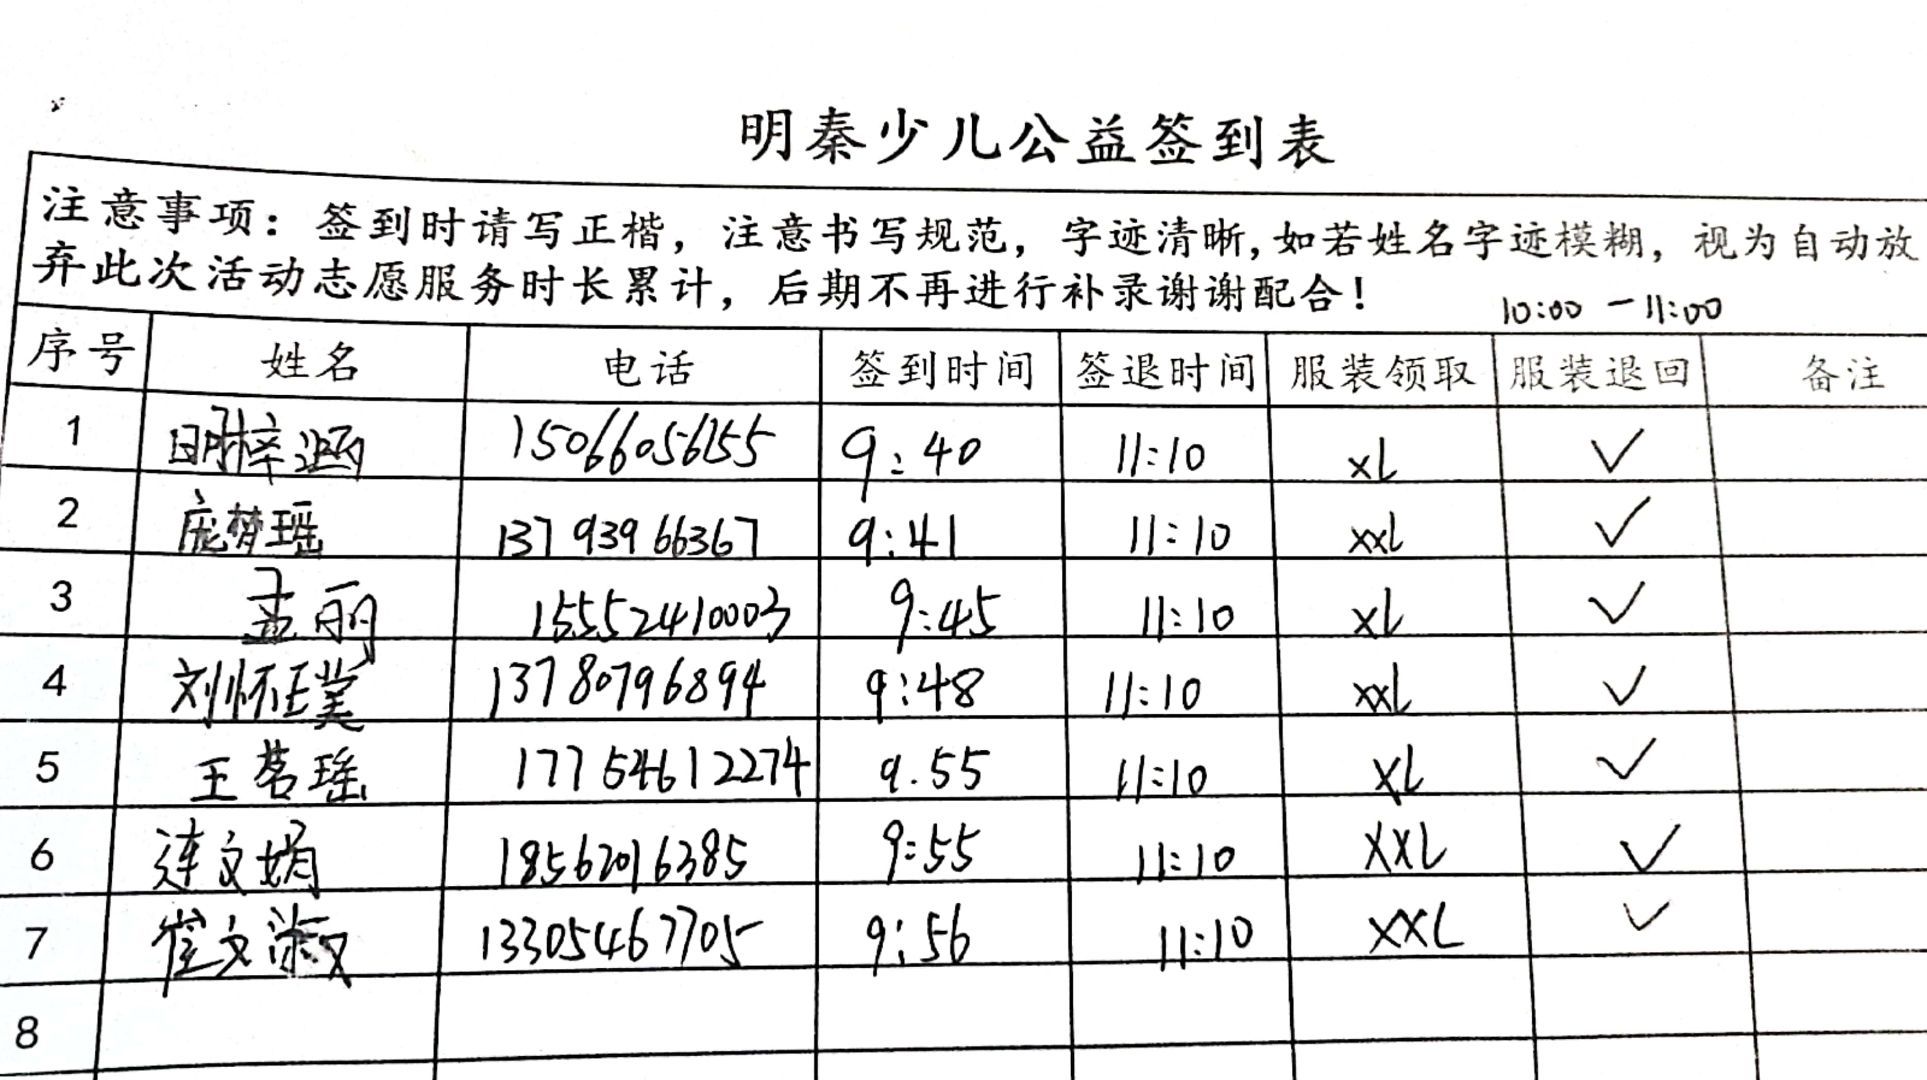 明秦少儿公益签到表
注意事项：签到时请写正楷，注意书写规范，字迹清晰，如若姓名字迹模糊，视为自动放
弃此次活动志愿服务时长累计，后期不再进行补录谢谢配合！
10:00 - 11:00
序号 姓名 电话 签到时间 签退时间 服装领取 服装退回 备注
1 明梓涵 15066056155 9:40 11:10 XL ✓
2 庞梦瑶 13793966367 9:41 11:10 XXL ✓
3 孟丽 15552410003 9:45 11:10 XL ✓
4 刘怀 13780796894 9:48 11:10 XXL ✓
5 王茗瑶 17754612274 9.55 11:10 XL ✓
6 连文娟 18562016385 9:55 11:10 XXL ✓
7 崔文淑 13305467705 9:56 11:10 XXL ✓
8